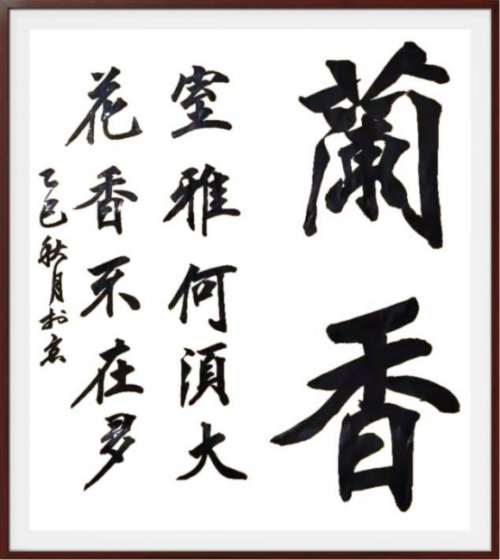 蘭香
室雅何須大
花香不在多
乙巳秋月於京